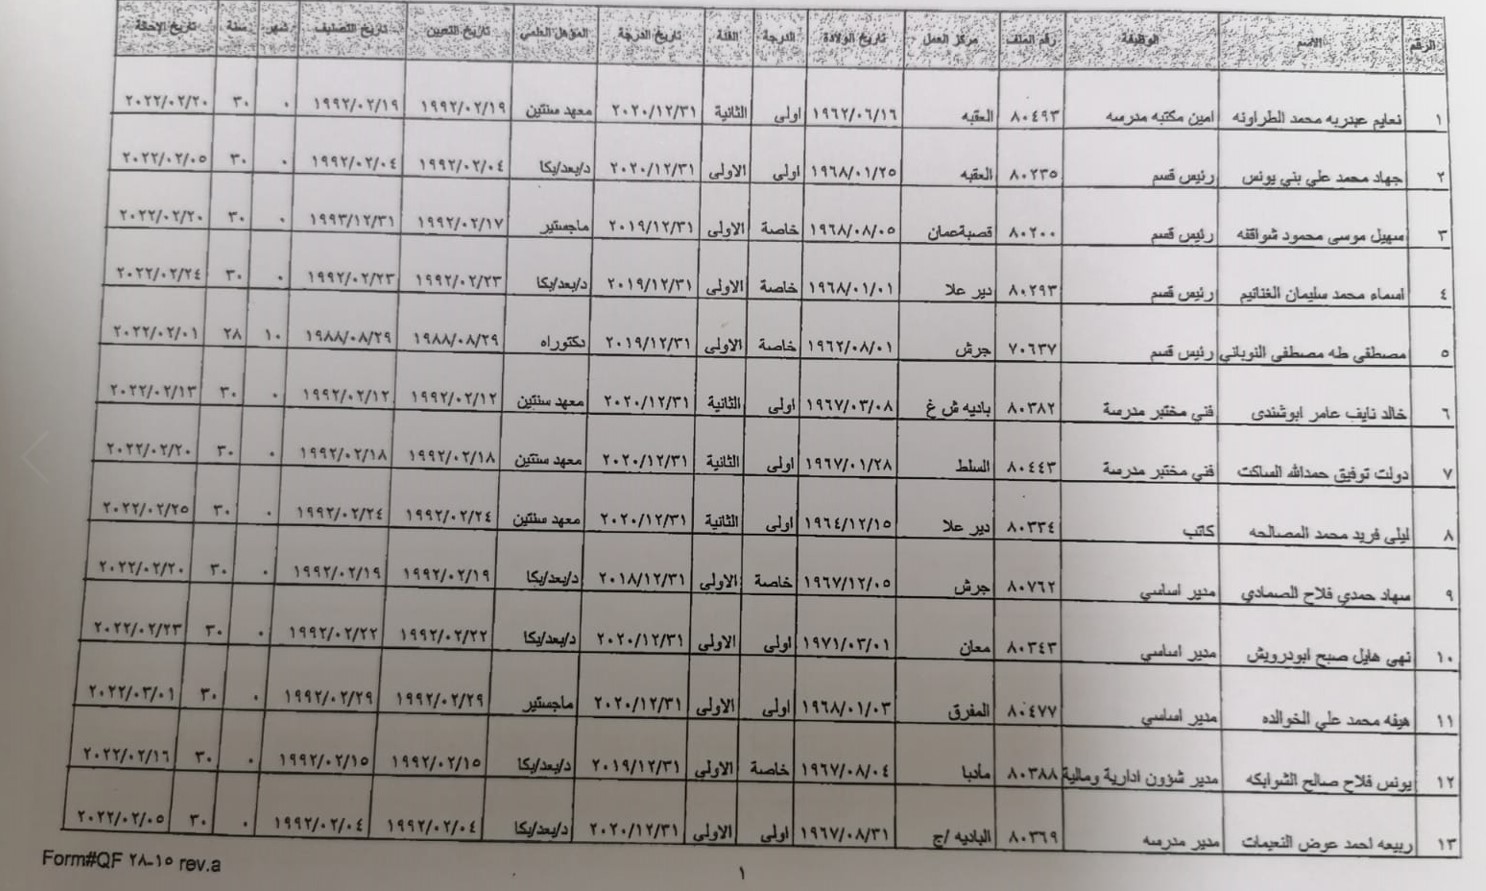 الرقم الاسم الوظيفة رقم الملف مركز العمل تاريخ الولادة الدرجة الفئة تاريخ الدرجة المؤهل العلمي تاريخ التعيين تاريخ التصنيف شهر سنة تاريخ الإحالة
١ نعايم عبدربه محمد الطراونه امين مكتبه مدرسه ٨٠٤٩٣ العقبه ١٩٦٢/٠٦/١٦ اولى الثانية ٢٠٢٠/١٢/٣١ معهد سنتين ١٩٩٢/٠٢/١٩ ١٩٩٢/٠٢/١٩ ٠ ٣٠ ٢٠٢٢/٠٢/٢٠
٢ جهاد محمد علي بني يونس رئيس قسم ٨٠٢٣٥ العقبه ١٩٦٨/٠١/٢٥ اولى الاولى ٢٠٢٠/١٢/٣١ د/بعد/بكا ١٩٩٢/٠٢/٠٤ ١٩٩٢/٠٢/٠٤ ٠ ٣٠ ٢٠٢٢/٠٢/٠٥
٣ سهيل موسى محمود شواقفه رئيس قسم ٨٠٢٠٠ قصبةعمان ١٩٦٨/٠٨/٠٥ خاصة الاولى ٢٠١٩/١٢/٣١ ماجستير ١٩٩٢/٠٢/١٧ ١٩٩٣/١٢/٣١ ٠ ٣٠ ٢٠٢٢/٠٢/٢٠
٤ اسماء محمد سليمان الغنانيم رئيس قسم ٨٠٢٩٣ دير علا ١٩٦٨/٠١/٠١ خاصة الاولى ٢٠١٩/١٢/٣١ د/بعد/بكا ١٩٩٢/٠٢/٢٣ ١٩٩٢/٠٢/٢٣ ٠ ٣٠ ٢٠٢٢/٠٢/٢٤
٥ مصطفى طه مصطفى النوباني رئيس قسم ٧٠٦٣٧ جرش ١٩٦٢/٠٨/٠١ خاصة الاولى ٢٠١٩/١٢/٣١ دكتوراه ١٩٨٨/٠٨/٢٩ ١٩٨٨/٠٨/٢٩ ١٠ ٢٨ ٢٠٢٢/٠٢/٠١
٦ خالد نايف عامر ابوشندى فني مختبر مدرسة ٨٠٣٨٢ باديه ش غ ١٩٦٧/٠٣/٠٨ اولى الثانية ٢٠٢٠/١٢/٣١ معهد سنتين ١٩٩٢/٠٢/١٢ ١٩٩٢/٠٢/١٢ ٠ ٣٠ ٢٠٢٢/٠٢/١٣
٧ دولت توفيق حمدالله الساكت فني مختبر مدرسة ٨٠٤٤٣ السلط ١٩٦٧/٠١/٢٨ اولى الثانية ٢٠٢٠/١٢/٣١ معهد سنتين ١٩٩٢/٠٢/١٨ ١٩٩٢/٠٢/١٨ ٠ ٣٠ ٢٠٢٢/٠٢/٢٠
٨ ليلى فريد محمد المصالحه كاتب ٨٠٣٣٤ دير علا ١٩٦٤/١٢/١٥ اولى الثانية ٢٠٢٠/١٢/٣١ معهد سنتين ١٩٩٢/٠٢/٢٤ ١٩٩٢/٠٢/٢٤ ٠ ٣٠ ٢٠٢٢/٠٢/٢٥
٩ سهاد حمدي فلاح الصمادي مدير اساسي ٨٠٧٦٢ جرش ١٩٦٧/١٢/٠٥ خاصة الاولى ٢٠١٨/١٢/٣١ د/بعد/بكا ١٩٩٢/٠٢/١٩ ١٩٩٢/٠٢/١٩ ٠ ٣٠ ٢٠٢٢/٠٢/٢٠
١٠ نهى هايل صبح ابودرويش مدير اساسي ٨٠٣٤٣ معان ١٩٧١/٠٣/٠١ اولى الاولى ٢٠٢٠/١٢/٣١ د/بعد/بكا ١٩٩٢/٠٢/٢٢ ١٩٩٢/٠٢/٢٢ ٠ ٣٠ ٢٠٢٢/٠٢/٢٣
١١ هيفه محمد علي الخوالده مدير اساسي ٨٠٤٧٧ المفرق ١٩٦٨/٠١/٠٣ اولى الاولى ٢٠٢٠/١٢/٣١ ماجستير ١٩٩٢/٠٢/٢٩ ١٩٩٢/٠٢/٢٩ ٠ ٣٠ ٢٠٢٢/٠٣/٠١
١٢ يونس فلاح صالح الشوابكه مدير شؤون ادارية ومالية ٨٠٣٨٨ مادبا ١٩٦٧/٠٨/٠٤ خاصة الاولى ٢٠١٩/١٢/٣١ د/بعد/بكا ١٩٩٢/٠٢/١٥ ١٩٩٢/٠٢/١٥ ٠ ٣٠ ٢٠٢٢/٠٢/١٦
١٣ ربيعه احمد عوض النعيمات مدير مدرسه ٨٠٣٦٩ الباديه /ج ١٩٦٧/٠٨/٣١ اولى الاولى ٢٠٢٠/١٢/٣١ د/بعد/بكا ١٩٩٢/٠٢/٠٤ ١٩٩٢/٠٢/٠٤ ٠ ٣٠ ٢٠٢٢/٠٢/٠٥
Form#QF ٢٨-١٥ rev.a
١